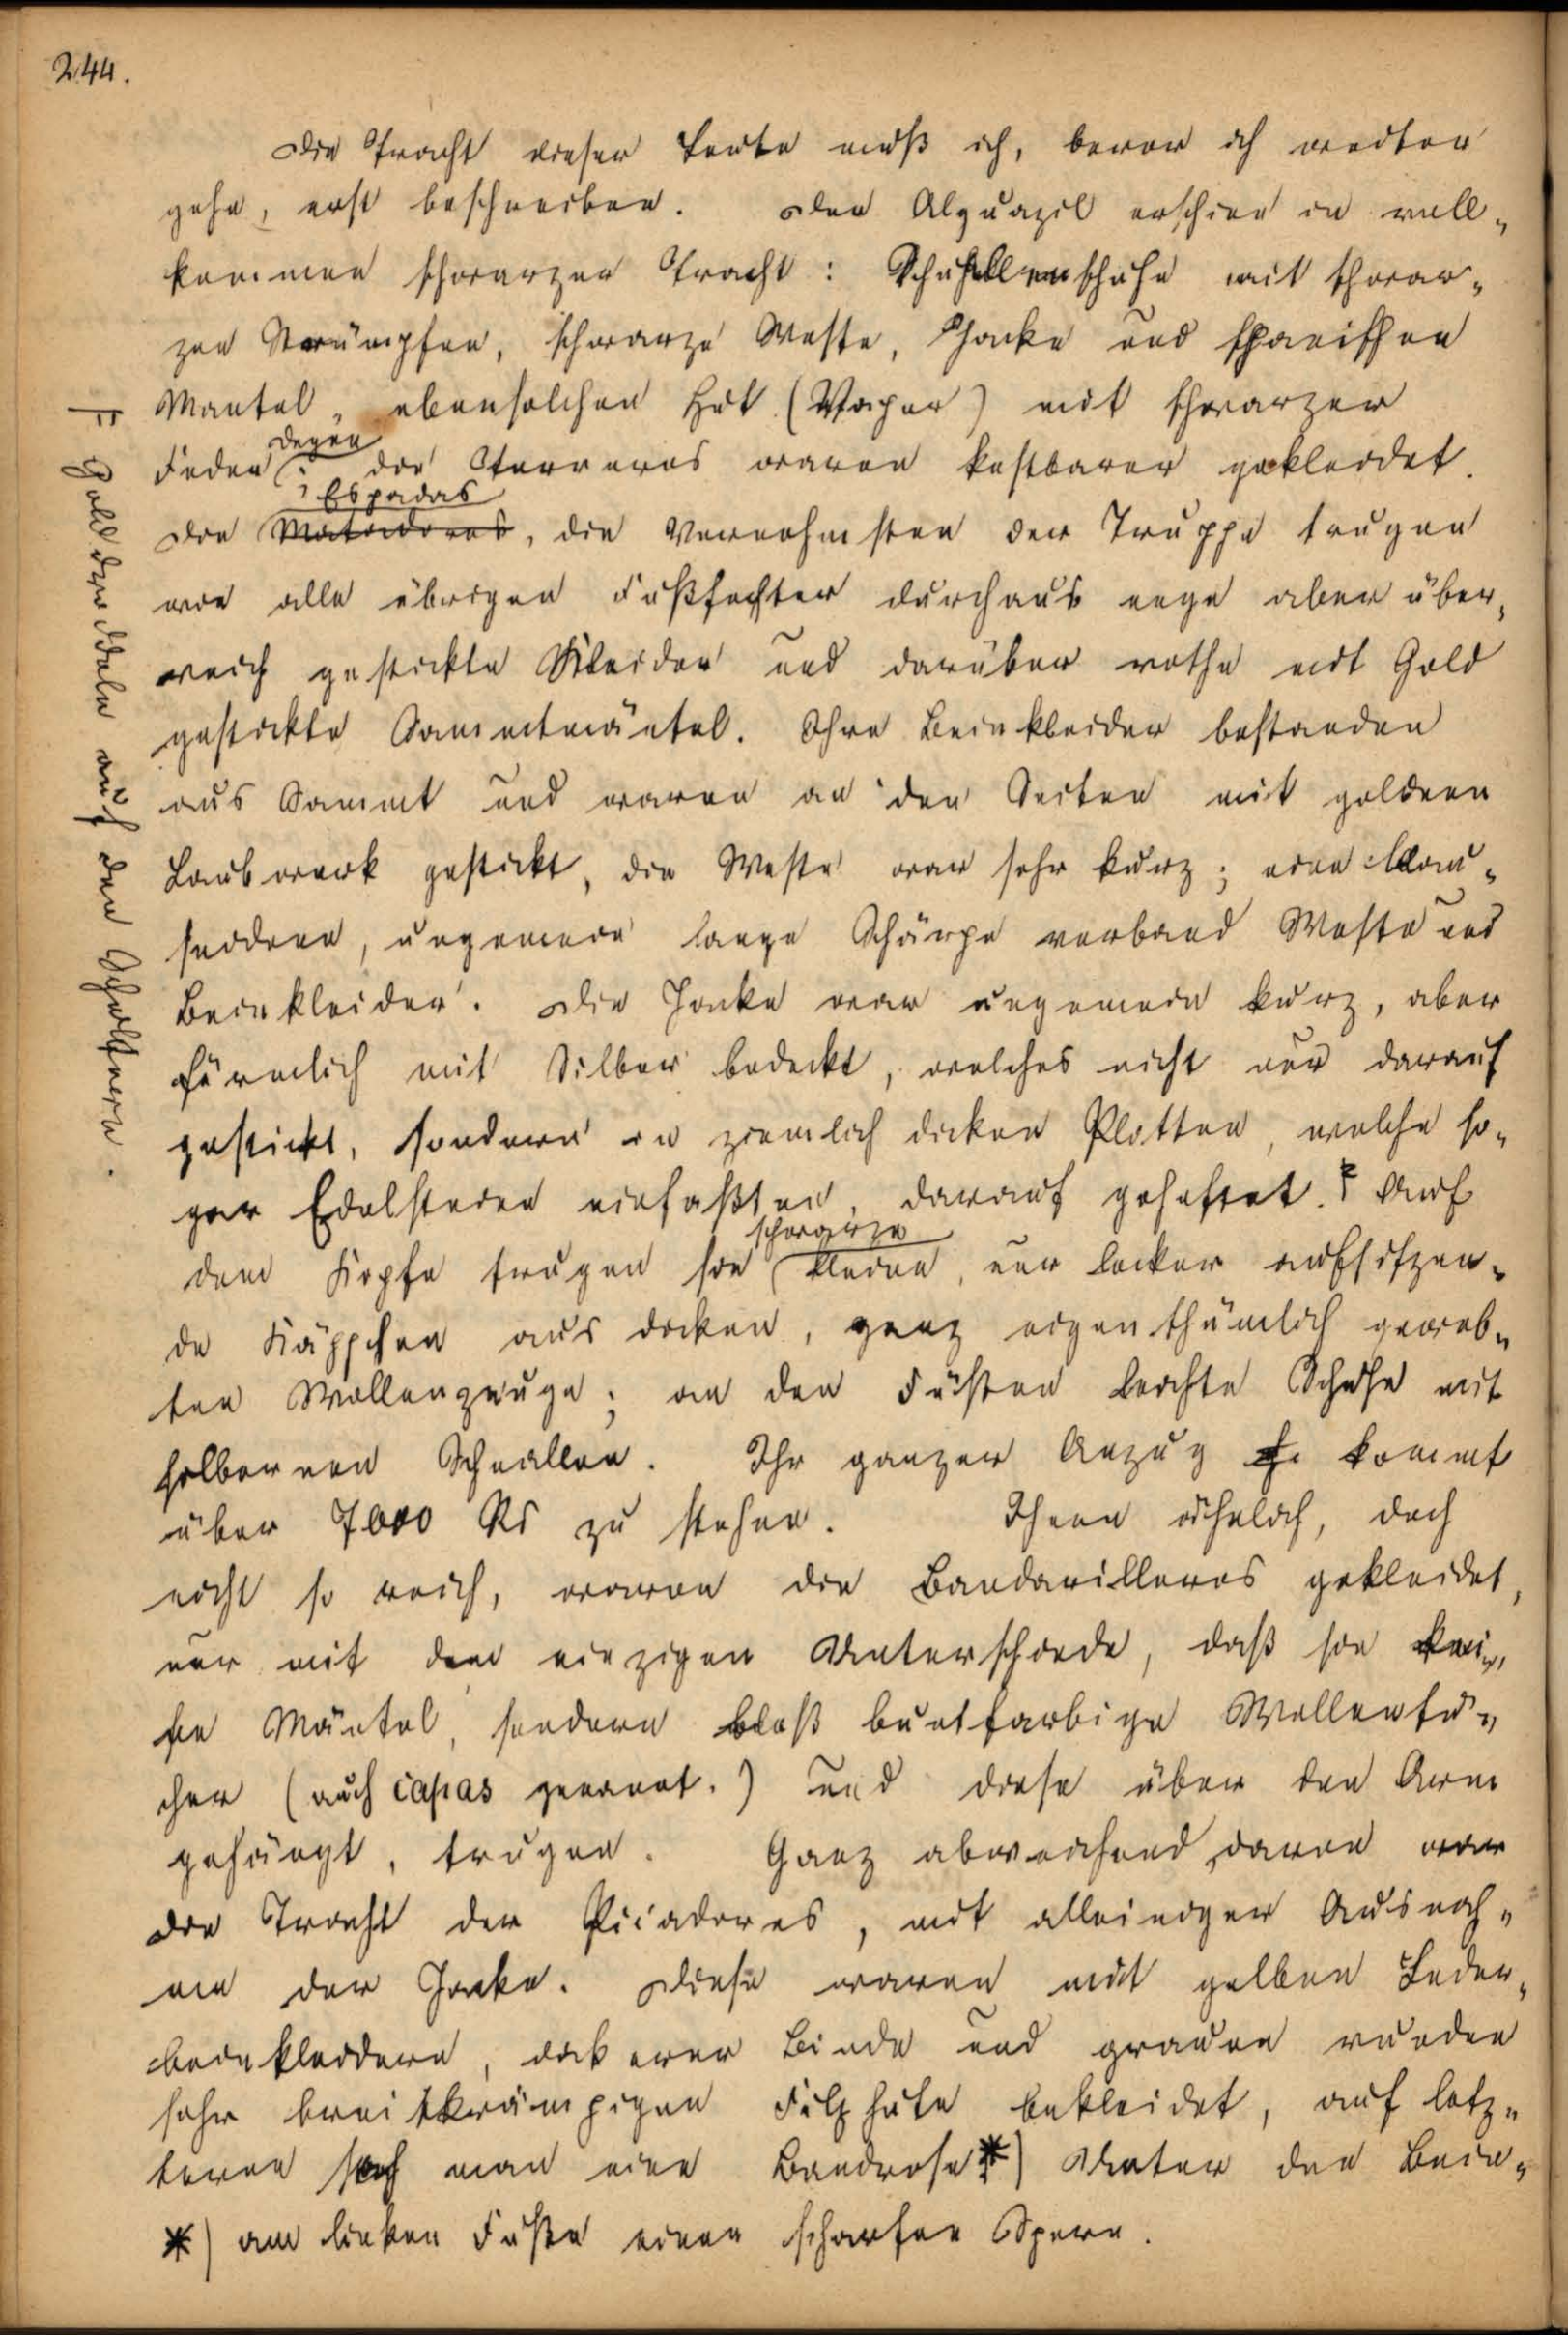 244.
Die Tracht dieser Leute muß ich, bevor ich weiter
gehe, erst beschreiben. Der Alguazil erschien in voll„
kommen schwarzer Tracht: Schnallenschuhe mit schwar„
zen Strümpfen, schwarze Weste, Jacke und spanischen
Mantel, ebensolchen Hut (Vaper) mit schwarzer
Feder; Degen die Torreros waren kostbarer gekleidet.
Die Matadores, Espadas die Vornehmsten der Truppe trugen
wie alle übrigen Fußfechter durchaus enge aber über„
reich gestickte Kleider und darüber rothe mit Gold
gestickte Sammtmäntel. Ihre Beinkleider bestanden
aus Sammt und waren an den Seiten mit goldenen
Laubwerk gestickt, die Weste war sehr kurz; eine blau„
seidene, ungemein lange Schärpe verband Weste und
Beinkleider. Die Jacke war ungemein kurz, aber
förmlich mit Silber bedeckt, welches nicht nur darauf
gestickt, sondern in ziemlich dicken Platten, welche so„
gar Edelsteine einfaßten, darauf geheftet. F Auf
dem Kopfe trugen sie schwarze kleine, nur locker aufsitzen„
de Käppchen aus dicken, ganz eigenthümlich geweb„
ten Wollenzeuge; an den Füßen leichte Schuhe mit
silbernen Schnallen. Ihr ganzer Anzug kommt
über 7000 Rs zu stehen. Ihnen ähnlich, doch
nicht so reich, waren die Bandarilleros gekleidet,
nur mit dem einzigen Unterschiede, daß sie kei„
ne Mäntel, sondern bloß buntfarbige Wollentü„
cher (auch capas genannt.) und diese über den Arm
gehängt, trugen. Ganz abweichend davon war
die Tracht der Picadores, mit alleiniger Ausnah„
me der Jacke. Diese waren mit gelben Leder„
beinkleidern, dickerer Binde und grauen runden
sehr breitkrämpigen Filzhüte bekleidet, auf letz„
teren sah man eine Bandrose *) Unter den Bein„
*) am linken Fuße einen scharfen Sporn.
F Golddroddeln auf den Schultern.